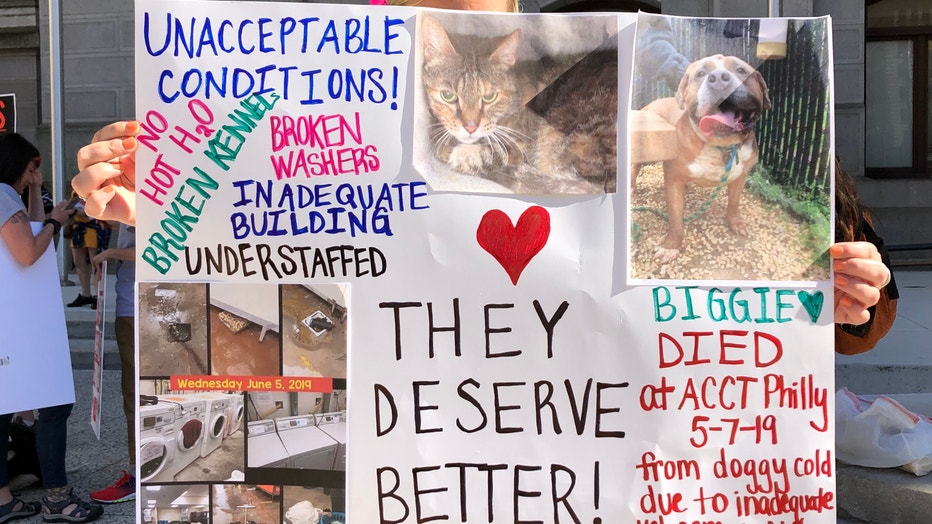 UNACCEPTABLE
CONDITIONS!
NO
HOT H₂O
BROKEN KENNELS
BROKEN
WASHERS
INADEQUATE
BUILDING
UNDERSTAFFED
Wednesday June 5, 2019
THEY
DESERVE
BETTER!
BIGGIE
DIED
at ACCT Philly
5-7-19
from doggy cold
due to inadequate